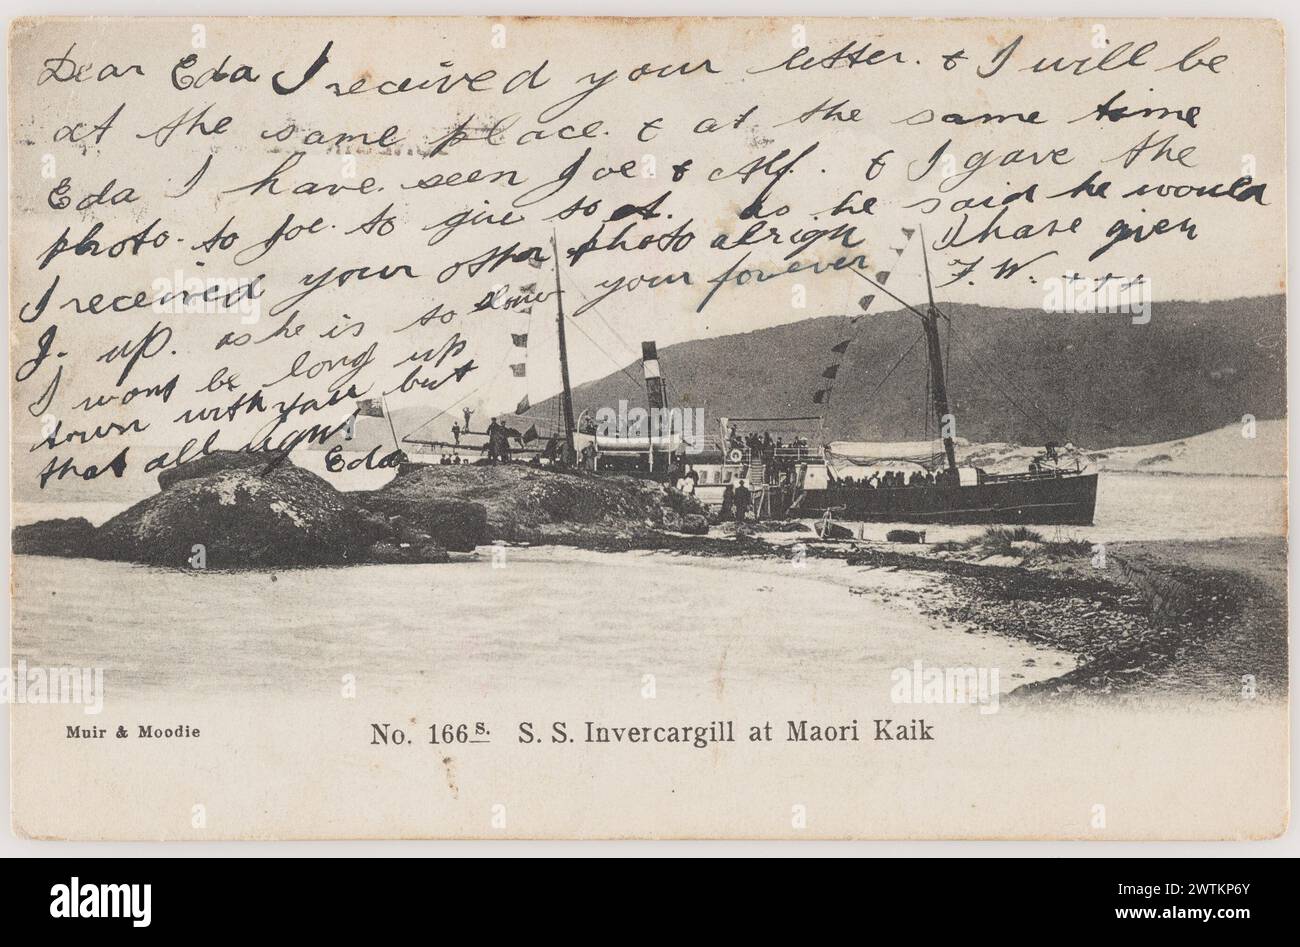 Dear Eda I received your letter. & I will be
at the same place. & at the same time
Eda I have. seen Joe. & Alf. & I gave the
photo. to Joe. to give to A. as. he said he would
I received your other photo alrigh I have given
J. up. as he is so slow your forever F. W. +++
I wont be long up
town with you but
that all right
Eda
Muir & Moodie
No. 166 s. S. S. Invercargill at Maori Kaik
alamy
alamy
Image ID: 2WTKP6Y
www.alamy.com